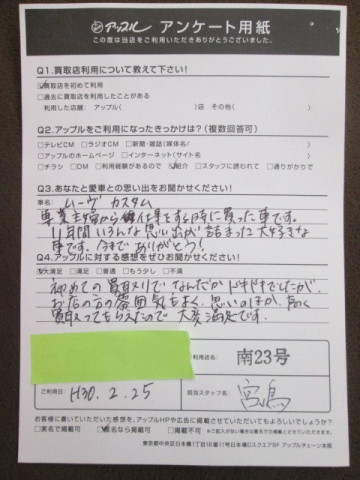 アップル アンケート用紙
この度は当店をご利用いただきありがとうございました。
Q1.買取店利用について教えて下さい!
☑買取を初めて利用
□過去に買取を利用したことがある
利用した店舗: アップル( )店 その他( )
Q2.アップルをご利用になったきっかけは?(複数回答可)
□テレビCM □ラジオCM □新聞・雑誌(媒体名/ )
□アップルのホームページ □インターネット(サイト名 )
□チラシ □DM □利用経験があるので ☑紹介 □スタッフに誘われて □通りがかりで
Q3.あなたと愛車との思い出をお聞かせください!
車名: ムーヴ カスタム
専業主婦から 仕事をする時に買った車です。
11年間いろんな思い出が詰まった大好きな
車です。今までありがとう!
Q4.アップルに対する感想をぜひお聞かせください!
☑大満足 □満足 □普通 □もう少し □不満
初めての買取りでなんだかドキドキでしたが、
お店の方の雰囲気もよく、思いのほか、高く
買取ってもらえたので大変満足です。
ご利用店名:
南23号
ご利用日:
H30.2.25
担当スタッフ名:
宮島
お客様に書いていただいた感想を、アップルHPや広告に掲載させていただいてもよろしいでしょうか?
□実名で掲載可 ☑匿名なら掲載可 □掲載不可
東京都中央区日本橋1丁目16番11号日本橋Dスクエア5F アップルチェーン本部